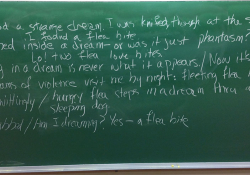 had a strange dream I was though at the
I found a flea bite
inside a dream — or was it just phantasm?
Lo! two flea love bites
in a dream is never what it appears / Now I
of violence visit me by night: fleeting flea
/ hungry flea steps in a dream thru a
sleeping dog
/ Am I dreaming? Yes — a flea bite